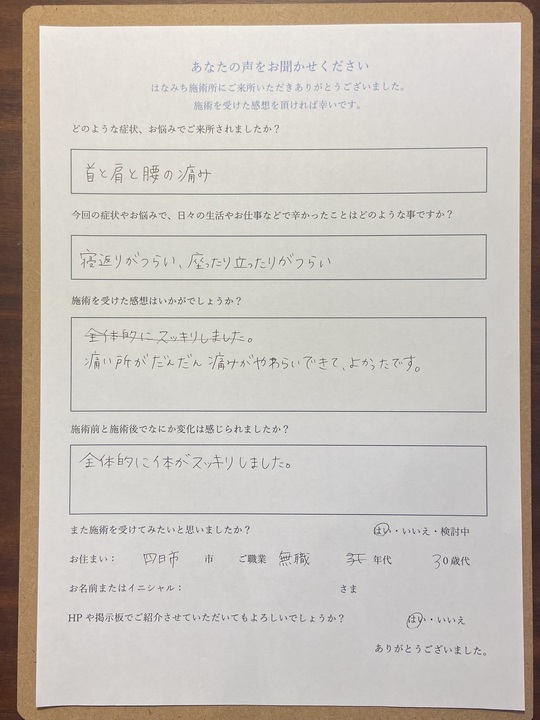 あなたの声をお聞かせください
はなみち施術所にご来所いただきありがとうございました。
施術を受けた感想を頂ければ幸いです。
どのような症状、お悩みでご来所されましたか？
首と肩と腰の痛み
今回の症状やお悩みで、日々の生活やお仕事などで辛かったことはどのような事ですか？
寝返りがつらい、座ったり立ったりがつらい
施術を受けた感想はいかがでしょうか？
全体的にスッキリしました。
痛い所がだんだん痛みがやわらいできて、よかったです。
施術前と施術後でなにか変化は感じられましたか？
全体的に体がスッキリしました。
また施術を受けてみたいと思いましたか？ はい・いいえ・検討中
お住まい： 四日市 市 ご職業 無職 年代 30歳代
お名前またはイニシャル： さま
HPや掲示板でご紹介させていただいてもよろしいでしょうか？ はい・いいえ
ありがとうございました。